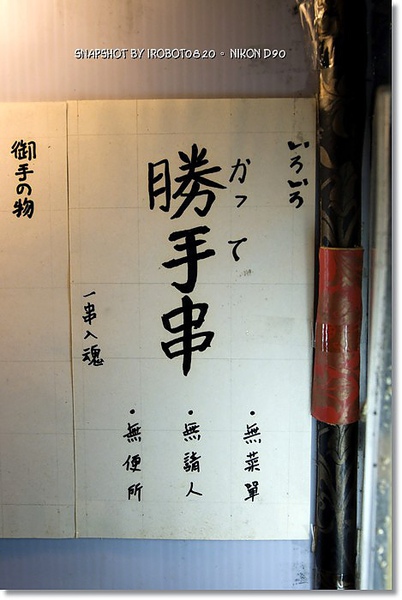 SNAPSHOT BY IROBOT0820。 NIKON D90
いろいろ
かって
勝手串
一串入魂
・無菜單
・無請人
・無便所
御手の物